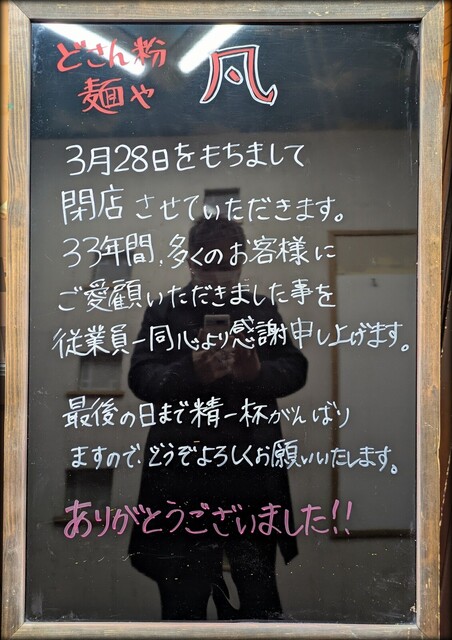 どさん粉
麺や
凡
3月28日をもちまして
閉店させていただきます。
33年間,多くのお客様に
ご愛顧いただきました事を
従業員一同心より感謝申し上げます。
最後の日まで精一杯がんばり
ますので、どうぞよろしくお願いいたします。
ありがとうございました!!